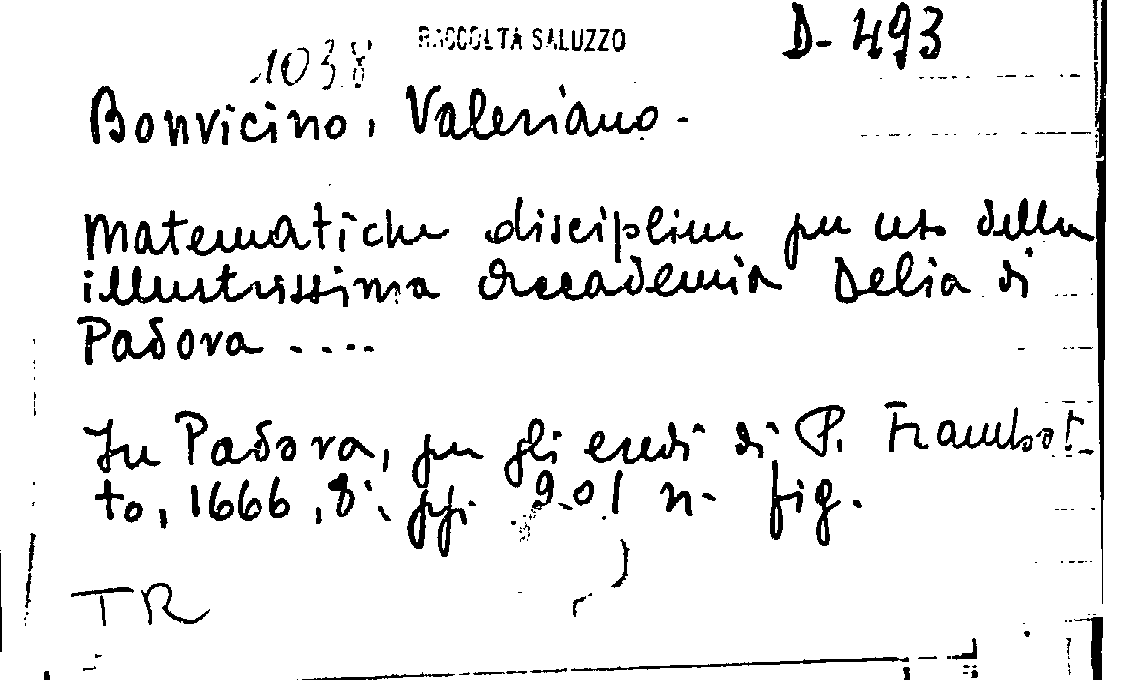 RACCOLTA SALUZZO
D- 493
1038
Bonvicino, Valeriano.
Matematiche discipline per uso della
illustrissima Accademia Delia di
Padova ....
In Padova, per gli eredi di P. Frambot-
to, 1666, 8°. pp. 201 n. fig.
TR